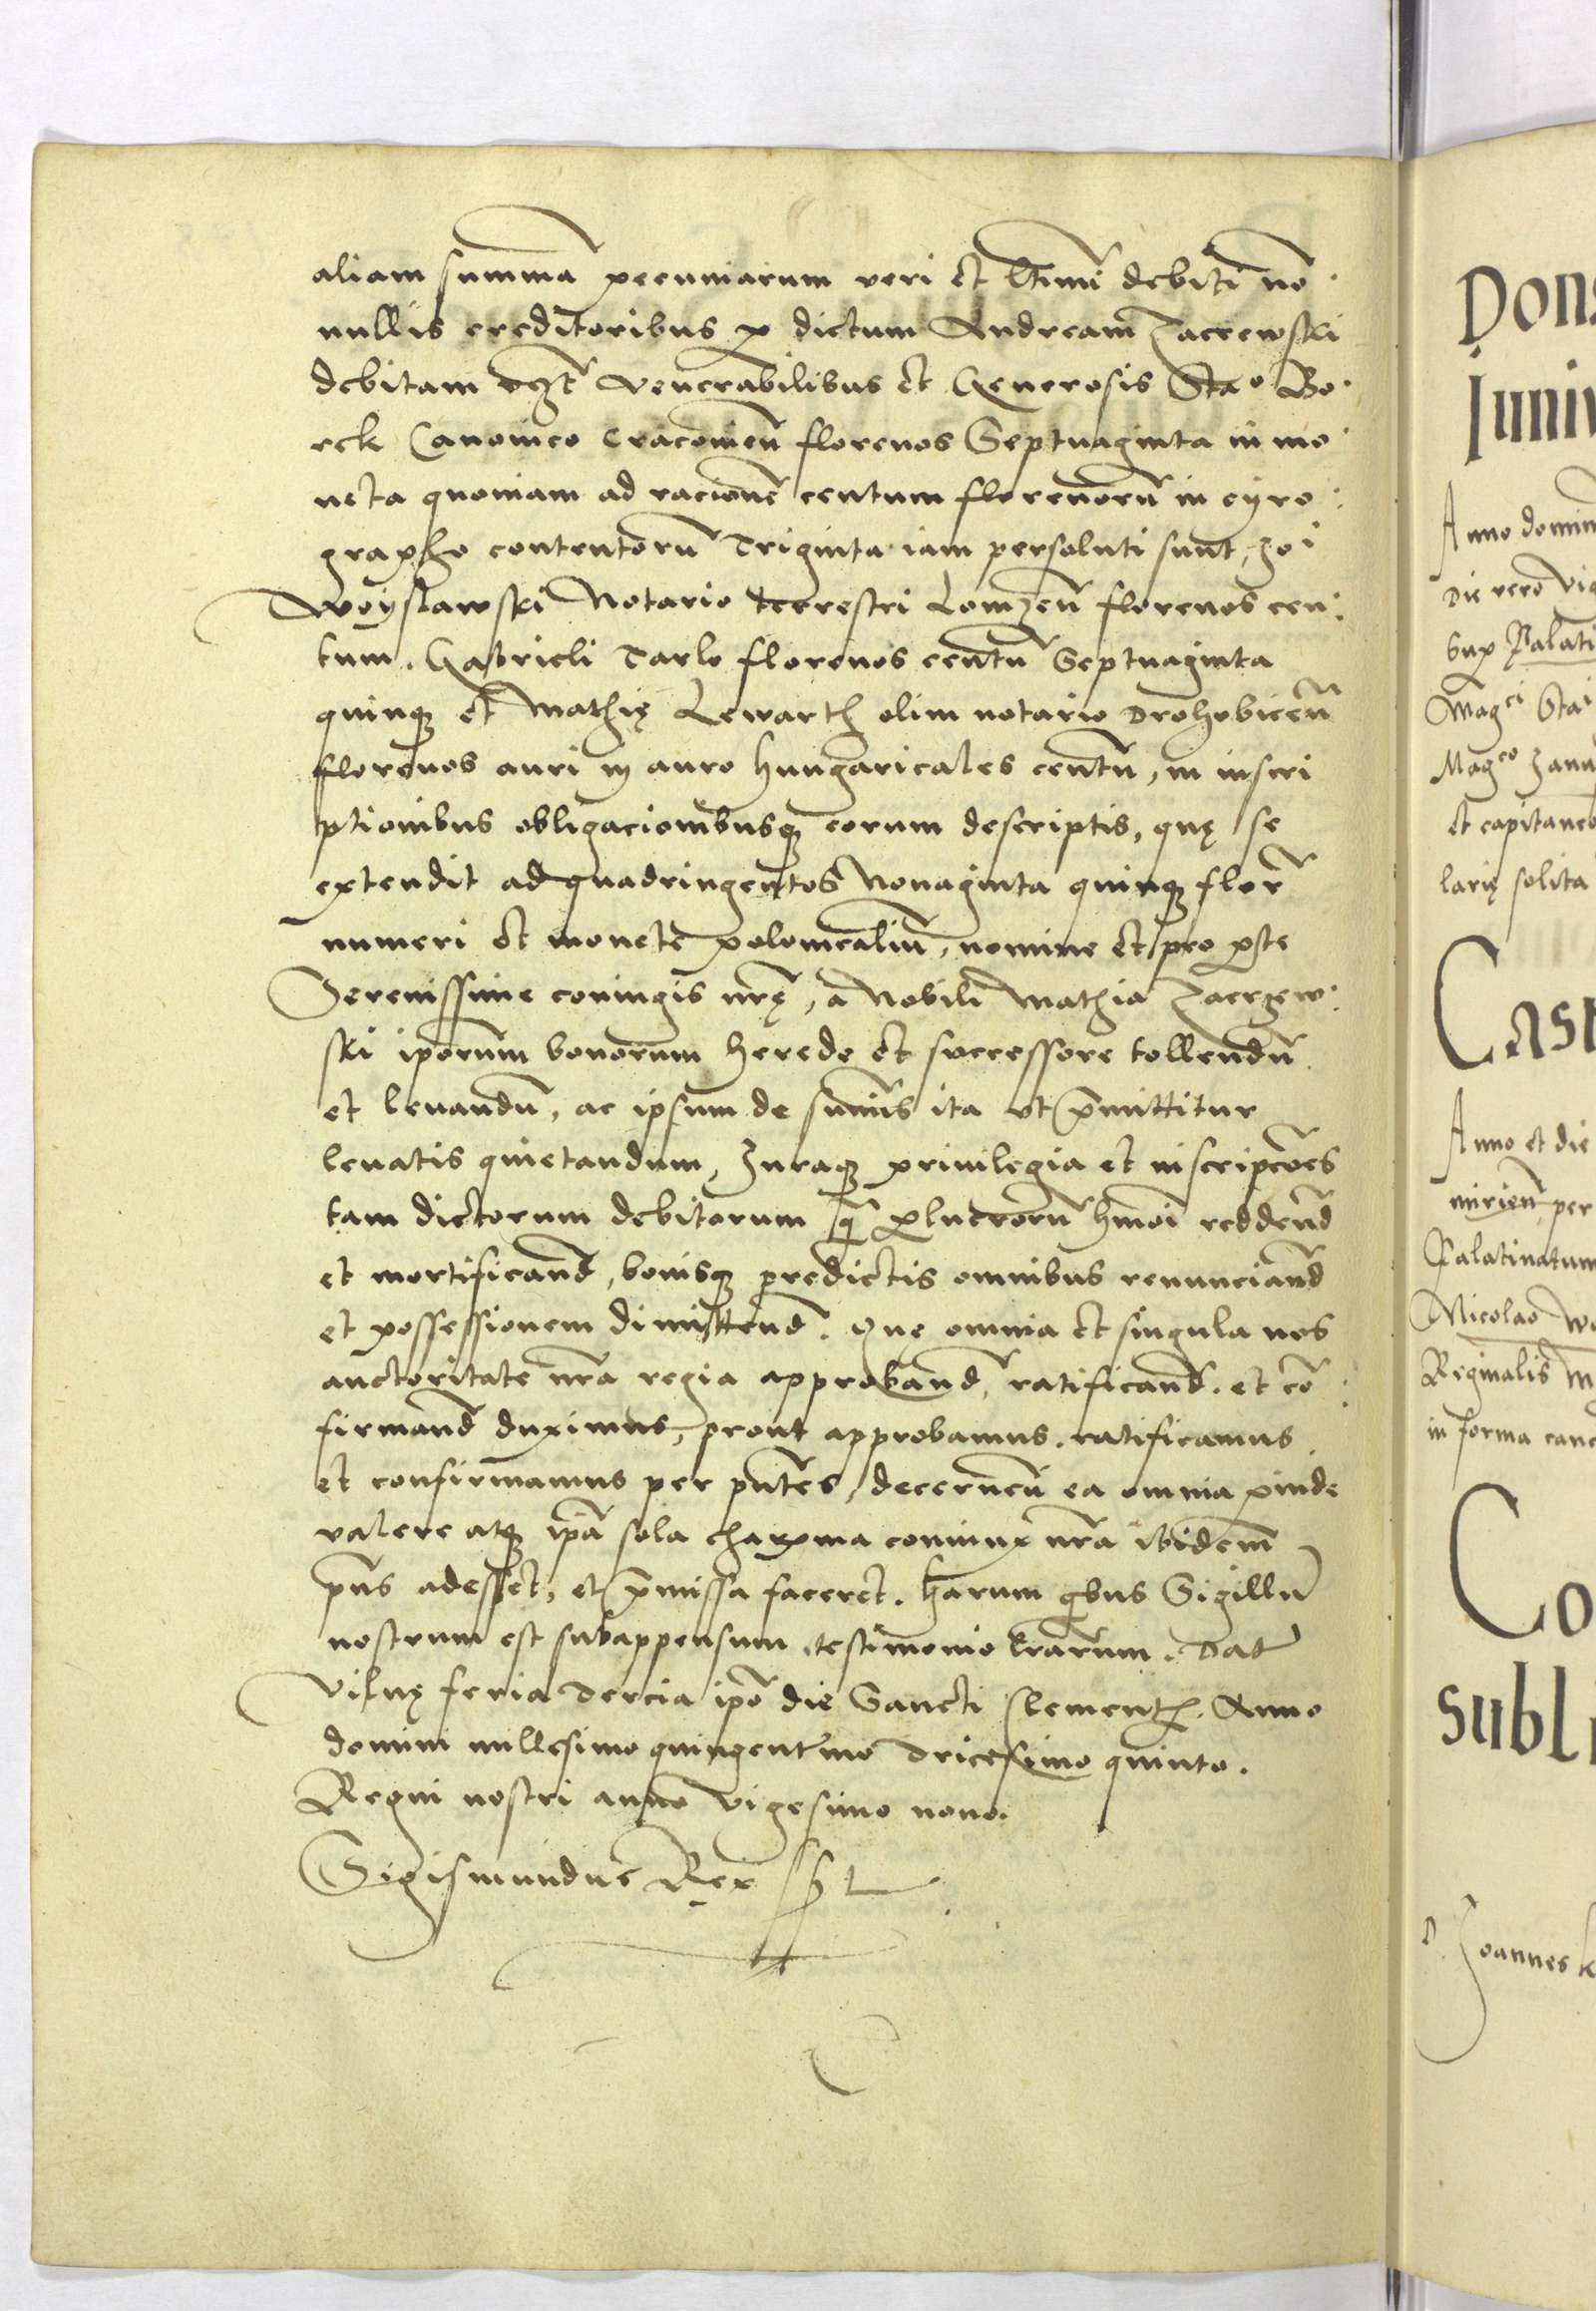 aliam summā pecuniarum veri et l̃timi debiti nō
nullis creditoribus p dictum Andream Zacrewski
debitam vcȝt venerabilibus et Generosis Stao Bo
rek Canonico Cracovieñ florenos Septuaginta in mo
neta quoniam ad racionē centum florenorū in cyro
grapho contentorū Triginta iam persoluti sunt, Joi
Woyslawski Notario terrestri Lomzeñ florenos cen
tum. Gabrieli Tarlo florenos centū Septuaginta
quinqȝ et Mathię Lewarth olim notario Drohobiceñ
florenos auri in auro hungaricales centū, in inscri
ptionibus obligacionibusqȝ eorum descriptis, quę se
extendit ad quadringentos Nonaginta quinqȝ flor̃
numeri et monete polonicaliū, nomine et pro pte
Serenissime coniugis nr̃ę, a Nobili Mathia Zacrzew
ski ipsorum bonorum herede et successore tollendū
et levandū, ac ipsum de sum̃is ita vt p̃mittitur
levatis quietandum, Juraqȝ privilegia et inscripcões
tam dictorum debitorum q̃ plucrorū hmõi reddend̃
et mortificand̃, bonisqȝ predictis omnibus renunciand̃
et possessionem dimittend̃. Que omnia et singula nos
auctoritate nr̃a regia approband̃, ratificand̃. et cõ
firmand̃ duximus, prout approbamus. ratificamus
et confirmamus per pn̄tes, decerneñ ea omnia pinde
valere atqȝ ip̃a sola charma coniunx nr̃a ibidem
pñs adesset, et p̃missa faceret. Harum qbus Sigillū
nostrum est subappensum testimonio l̃rarum. Dat̃
Vilnę feria Tercia ipõ die Sancti Clementȝ. Anno
domini millesimo quingentmo Tricesimo quinto.
Regni nostri anno vigesimo nono.
Sigismundus Rex sst
Dona
Juniv
Anno domin
Die vero vig
Sup Palati
Magci Stai
Magco Janu
et capitaneo
larię solita
Casr
Anno et die
mirieñ per
Palatinatum
Nicolao Wo
Reginalis M
in forma canc
Co
subli
D. Joannes k